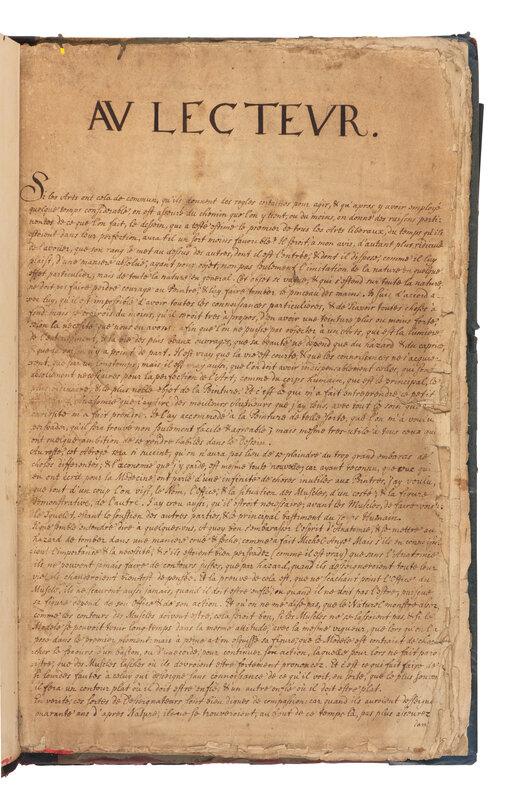 AV LECTEVR.
Si les Arts ont cela de commun, qu'ils donnent des regles certaines pour agir, & qu'apres y avoir employé
quelque temps considerable, on est asseuré du chemin que l'on y tient, ou du moins, on donne des raisons perti-
nentes de ce que l'on fait, le dessein, que a esté estimé le premier de tous les Arts liberaux, du temps qu'ils
estoient dans leur perfection, aura-t-il un sort moins favorable? Il seroit a mon avis, d'autant plus ridicule
de l'avoüer, que son rang le met au dessus des autres, dont il est l'entrée, & dont il dispose, comme il luy
plaist, d'une maniere absoluë, ayant pour objet, non pas seulement l'imitation de la nature en quelque
effet particulier, mais de toute la nature en general. Cet objet si vaste, & qui s'estend sur toute la nature,
ne doit pas faire perdre courage au Peintre, & luy faire tomber le pinceau des mains. Je suis d'accord a-
vec luy, qu'il est impossible d'avoir toutes les connoissances particulieres, & de sçavoir toutes choses à
fond mais je croirois du moins, qu'il seroit tres à propos, d'en avoir une teinture plus ou moins forte,
selon la necessité que nous en avons: afin que l'on ne puisse pas objecter à un Art, que est la lumiere
de l'entendement, & la vie des plus beaux ouvrages, que sa beauté ne depend que du hazard & du caprice
& que la raison n'y a point de part. Il est vray que la vie est courte, & que les connoissances ne s'acquie-
rent, que par un long temps, mais il est vray aussi, que l'on doit avoir indispensablement celles, qui sont
absolument necessaires pour la perfection de l'Art, comme du corps humain, que est le principal, le
plus ordinaire, & le plus noble objet de la Peinture. Et c'est ce qui m'a fait entreprendre ce petit
que j'ay tiré des meilleurs
m'a fait prendre. Je l'ay accommodé à la Peinture de telle sorte, que l'on m'a voulu
persuader, qu'il sera trouvé non seulement facile & agreable; mais mesme tres-utile à tous ceux qui
ont quelque ambition de se rendre habiles dans le Dessein.
Au reste, cet abregé sera si succint, qu'on n'aura pas lieu de se plaindre du trop grand embaras de
choses differentes; & l'œconomie que j'y garde, est mesme toute nouvelle; car ayant reconnu, que ceux qui
en ont écrit pour la Medecine, ont parlé d'une infinité de choses inutiles aux Peintres, j'ay voulu,
que tout d'un coup l'on vist, le Nom, l'Office, & la situation des Muscles, d'un costé; & la figure
demonstrative, de l'autre. J'ay creu aussi, qu'il estoit necessaire, avant les Muscles, de faire voir
le Squelet, estant le soustien des autres parties, & le principal bastiment du Corps Humain.
Il me semble entendre dire à quelques-uns, A quoy bon s'embarasser l'esprit d'Anatomie, & se mettre au
hazard de tomber dans une maniere cruë & seche, comme a fait Michel-Ange? Mais s'ils en connoiss-
oient l'importance & la necessité, & s'ils estoient bien persuadez (comme il est vray) que sans l'Anatomie
ils ne peuvent jamais faire de contours justes, que par hazard, quand ils dessigneroient toute leur
vie, ils changeroient bientost de pensée. Et la preuve de cela est, que ne sçachant point l'Office du
Muscle, ils ne sçauront aussi jamais, quand il doit estre enflé, ou quand il ne doit pas l'estre, puisque
sa figure depend de son office & de son action. Et qu'on ne me dise pas, que le Naturel monstre assez
comme ces contours des Muscles doivent estre, cela seroit bon, si les Muscles ne se lassoient pas, & si le
Modele se pouvoit tenir long temps dans la mesme attitude, avec la mesme vigueur, que l'on l'a
posé dans le premier moment mais à peine a-t-on esquissé sa figure, que le Modele est contraint de cher-
cher le secours d'un baston, ou d'une corde, pour continuer son action, laquelle pour lors ne fait para-
itre, que des Muscles lasches où ils devroient estre fortement prononcez. Et c'est ce qui fait faire de
si lourdes fautes à celuy qui dessigne sans connoissance de ce qu'il voit, en sorte, que le plus souvent
il fera un contour plat où il doit estre enflé; & un autre enflé où il doit estre plat.
En verité, ces sortes de Dessignateurs sont bien dignes de compassion: car quand ils auroient dessigné
quarante ans d'apres Nature, ils ne se trouveroient, au bout de ce temps là, pas plus asseurez